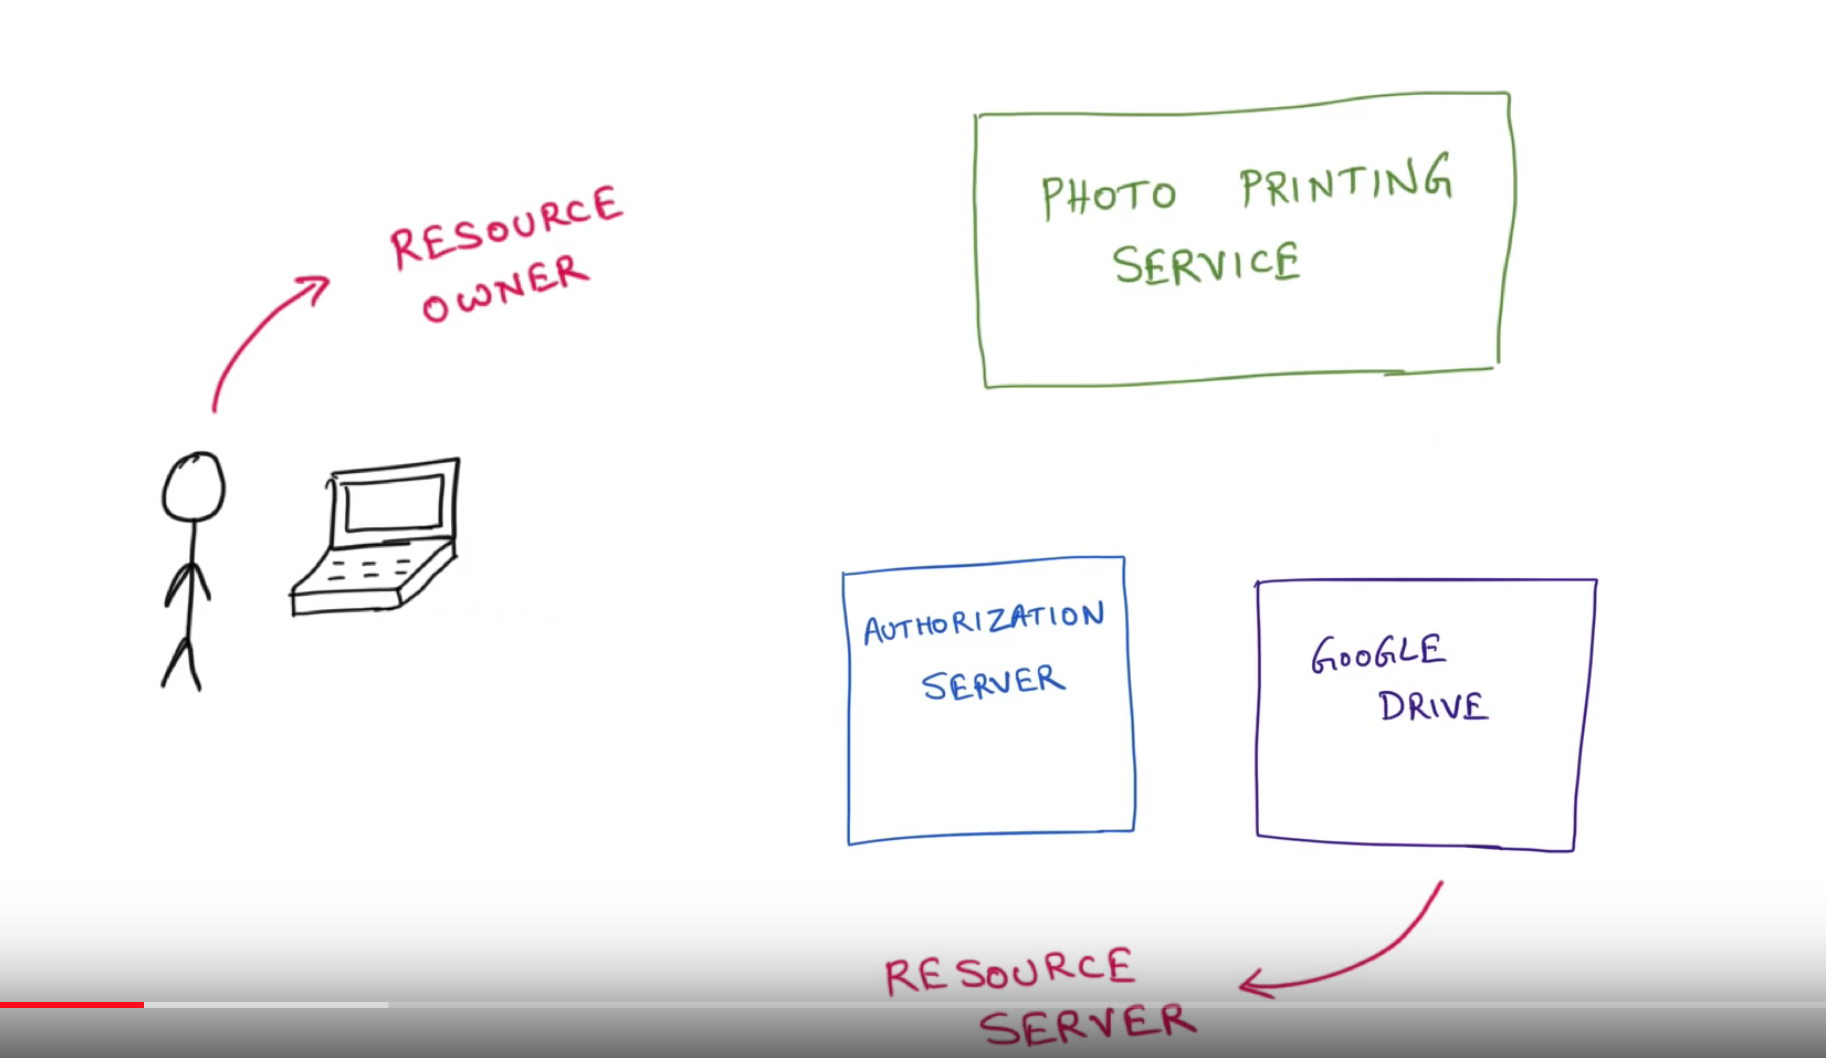 RESOURCE
OWNER
PHOTO PRINTING
SERVICE
AUTHORIZATION
SERVER
GOOGLE
DRIVE
RESOURCE
SERVER